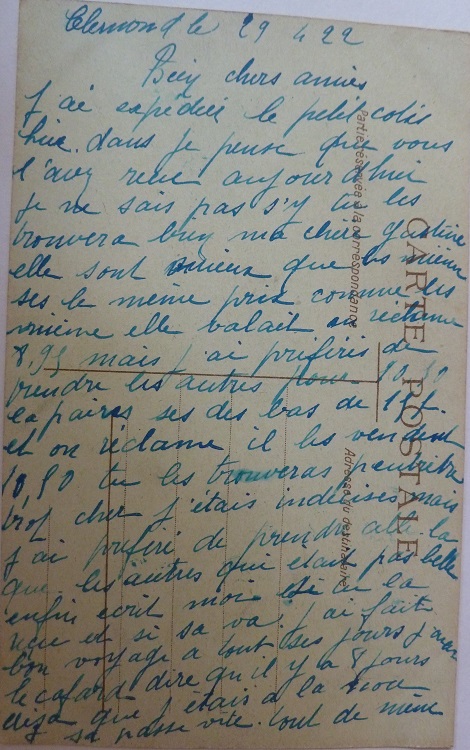 Clermond le 29 4 22
Bien chers amies
J ai expédiér le petit colis
hier. dans je pense que vous
l'avez reçue aujourd'hui
je ne sais pas s'y tu les
trouvera bien ma chère
elle sont mieux que les mien
ses le même prix comme les
mième elle valait en réclame
8,95 mais j ai préféris de
prendre les autres pour 10,50
la paires ses des bas de
et on réclame il les vendent
10,50 tu les trouveras peutêtre
trop cher j'étais indécises mais
j ai préféré de prendre celle la
que les autres qui était pas belle
enfin écrit moi si tu la
reçu et si sa va. j ai fait
bon voyage a tout ses jours j'avai
le cafard dire qu'il y a 8 jours
que j'étais a la
sa passe vite. tout de même
CARTE POSTALE
Partie réservée à la correspondance
Adresse du destinataire